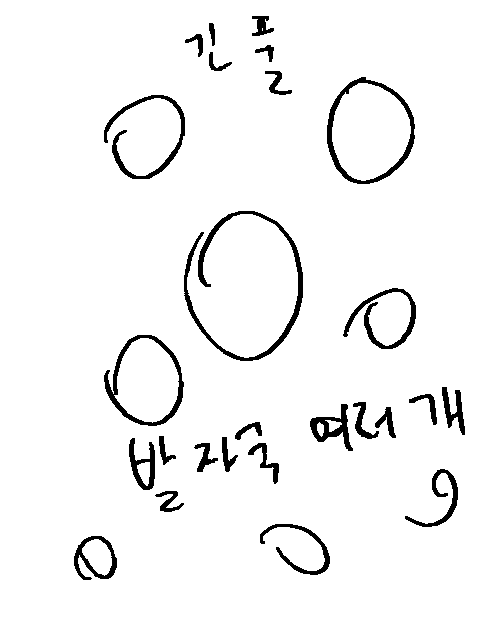 긴 풀
발자국 여러 개